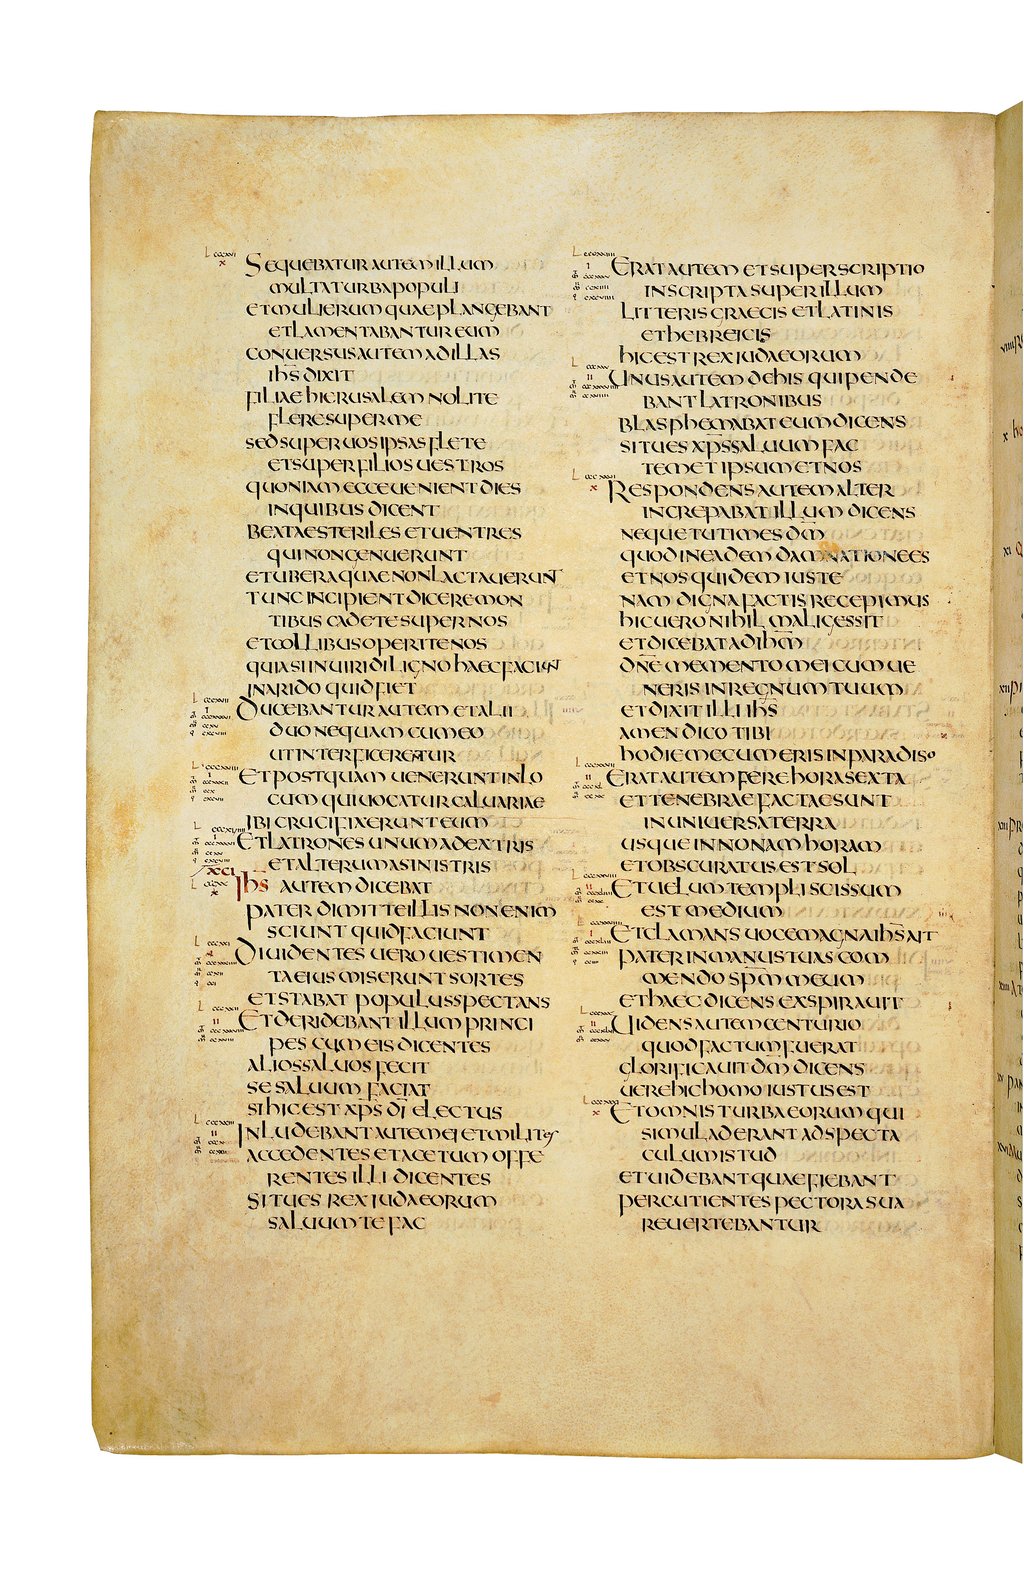 SEQUEBATUR AUTEM ILLUM
MULTA TURBA POPULI
ET MULIERUM QUAE PLANGEBANT
ET LAMENTABANTUR EUM
CONUERSUS AUTEM AD ILLAS
IHS̅ DIXIT
FILIAE HIERUSALEM NOLITE
FLERE SUPER ME
SED SUPER UOS IPSAS FLETE
ET SUPER FILIOS UESTROS
QUONIAM ECCE UENIENT DIES
IN QUIBUS DICENT
BEATAE STERILES ET UENTRES
QUI NON GENUERUNT
ET UBERA QUAE NON LACTAUERUNT
TUNC INCIPIENT DICERE MON
TIBUS CADETE SUPER NOS
ET COLLIBUS OPERITE NOS
QUIA SI IN UIRIDI LIGNO HAEC FACIUNT
IN ARIDO QUID FIET
DUCEBANTUR AUTEM ET ALII
DUO NEQUAM CUM EO
UT INTERFICERENTUR
ET POSTQUAM UENERUNT IN LO
CUM QUI UOCATUR CALUARIAE
IBI CRUCIFIXERUNT EUM
ET LATRONES UNUM A DEXTRIS
ET ALTERUM A SINISTRIS
XCI
IHS̅ AUTEM DICEBAT
PATER DIMITTE ILLIS NON ENIM
SCIUNT QUID FACIUNT
DIUIDENTES UERO UESTIMEN
TA EIUS MISERUNT SORTES
ET STABAT POPULUS SPECTANS
ET DERIDEBANT ILLUM PRINCI
PES CUM EIS DICENTES
ALIOS SALUOS FECIT
SE SALUUM FACIAT
SI HIC EST XPS̅ DI̅ ELECTUS
INLUDEBANT AUTEM EI ET MILITES
ACCEDENTES ET ACETUM OFFE
RENTES ILLI DICENTES
SI TU ES REX IUDAEORUM
SALUUM TE FAC
ERAT AUTEM ET SUPERSCRIPTIO
INSCRIPTA SUPER ILLUM
LITTERIS GRAECIS ET LATINIS
ET HEBREICIS
HIC EST REX IUDAEORUM
UNUS AUTEM DE HIS QUI PENDE
BANT LATRONIBUS
BLASPHEMABAT EUM DICENS
SI TU ES XPS̅ SALUUM FAC
TEMET IPSUM ET NOS
RESPONDENS AUTEM ALTER
INCREPABAT ILLUM DICENS
NEQUE TU TIMES DM̅
QUOD IN EADEM DAMNATIONE ES
ET NOS QUIDEM IUSTE
NAM DIGNA FACTIS RECEPIMUS
HIC UERO NIHIL MALI GESSIT
ET DICEBAT AD IHM̅
DNE̅ MEMENTO MEI CUM UE
NERIS IN REGNUM TUUM
ET DIXIT ILLI IHS̅
AMEN DICO TIBI
HODIE MECUM ERIS IN PARADISO
ERAT AUTEM FERE HORA SEXTA
ET TENEBRAE FACTAE SUNT
IN UNIUERSA TERRA
USQUE IN NONAM HORAM
ET OBSCURATUS EST SOL
ET UELUM TEMPLI SCISSUM
EST MEDIUM
ET CLAMANS UOCE MAGNA IHS̅ AIT
PATER IN MANUS TUAS COM
MENDO SPM̅ MEUM
ET HAEC DICENS EXSPIRAUIT
UIDENS AUTEM CENTURIO
QUOD FACTUM FUERAT
GLORIFICAUIT DM̅ DICENS
UERE HIC HOMO IUSTUS EST
ET OMNIS TURBA EORUM QUI
SIMUL ADERANT AD SPECTA
CULUM ISTUD
ET UIDEBANT QUAE FIEBANT
PERCUTIENTES PECTORA SUA
REUERTEBANTUR